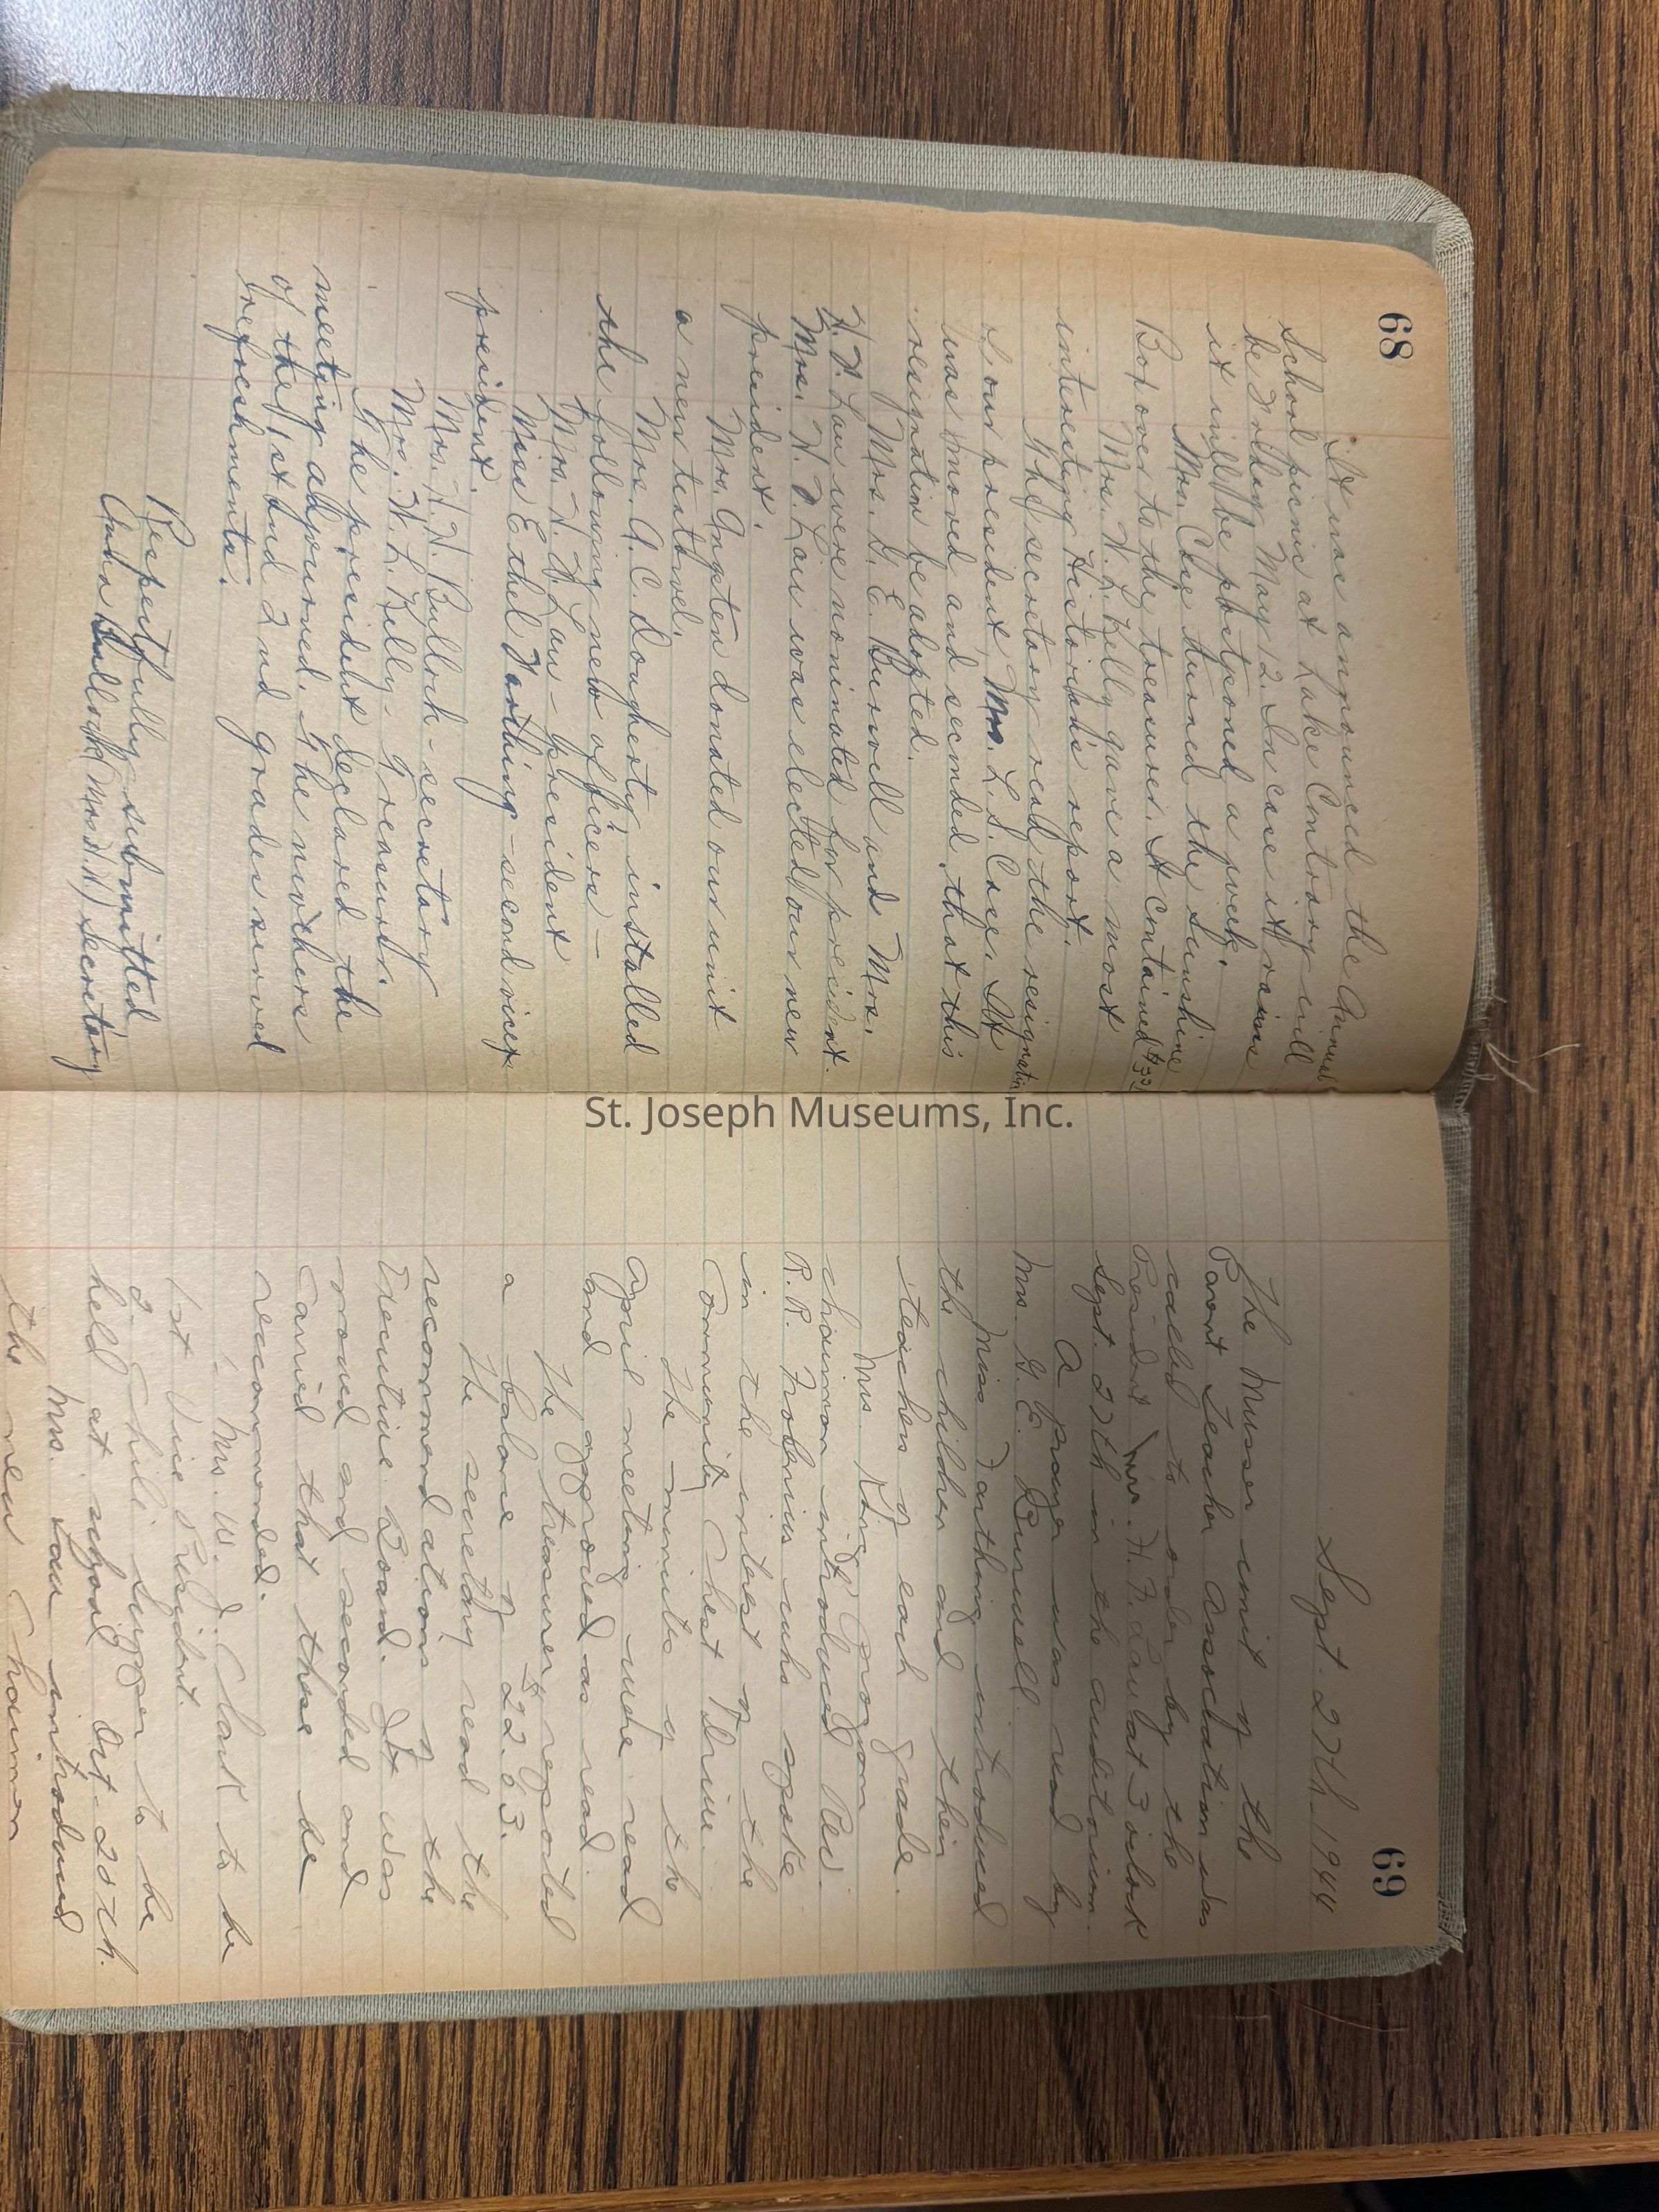 68
It was announced the Annual
School picnic at Lake Contrary will
be Friday May 12. In case it rains
it will be postponed a week.
Mrs. Case turned the Sunshine
Box over to the treasurer. It contained
Mrs. W. L. Kelly gave a most
interesting Historian's report.
The secretary read the resignation
of our president, Mrs. L. S. Case. It
was moved and seconded that this
resignation be adopted.
Mrs. G. E. Burwell and Mrs.
H. F. Lau were nominated for president.
Mrs. H. F. Lau was elected our new
president.
Mrs. Angsten donated our unit
a new teatowel.
Mrs. A. C. Dougherty installed
the following new officers –
Mrs. H. F. Lau – president
Miss Ethel Farthing – second vice
president.
Mrs. H. H. Bullock – secretary
Mrs. W. L. Kelly – Treasurer.
The president declared the
meeting adjourned. The mothers
of the 1st and 2nd grades served
refreshments.
Respectfully submitted
Bullock (Mrs. H. H.) Secretary
St. Joseph Museums, Inc.
69
Sept. 27th – 1944
The Musser unit of the
Parent Teacher Association was
called to order by the
President Mrs. H. F. Lau at 3 o'clock
Sept. 27th in the auditorium.
A prayer was read by
Mrs. G. E. Burwell.
Miss Farthing introduced
the children and their
teachers of each grade.
Mrs King Program
chairman introduced Rev.
R. R. Frobenius who spoke
in the interest of the
Community Chest Drive.
The minutes of the
April meeting were read
and approved as read.
The treasurer reported
a balance of $22.63.
The secretary read the
recommendations of the
Executive Board. It was
moved and seconded and
carried that these be
recommended.
1. Mrs. W. J. Clark to be
1st Vice President.
2. Chili supper to be
held at school Oct. 20th.
Mrs. Lau introduced
the new Chairmen